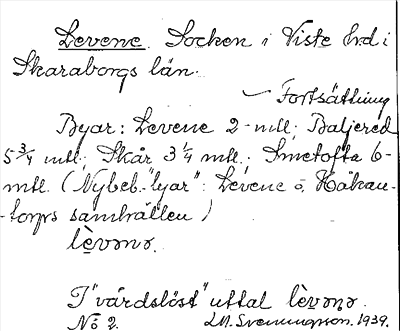 Levene. Socken i Viste hd i
Skaraborgs län.
— Fortsättning
Byar: Levene 2-mtl; Baljered
5 3/4 mtl.; Skår 3 1/4 mtl.; Smetofta 6-
mtl. (Nybeb. "byar": Levene o. Håkan-
-torps samhällen)
lèvənə.
I "vårdslöst" uttal lèvənə.
No 2. LM. Svenungsson. 1939.